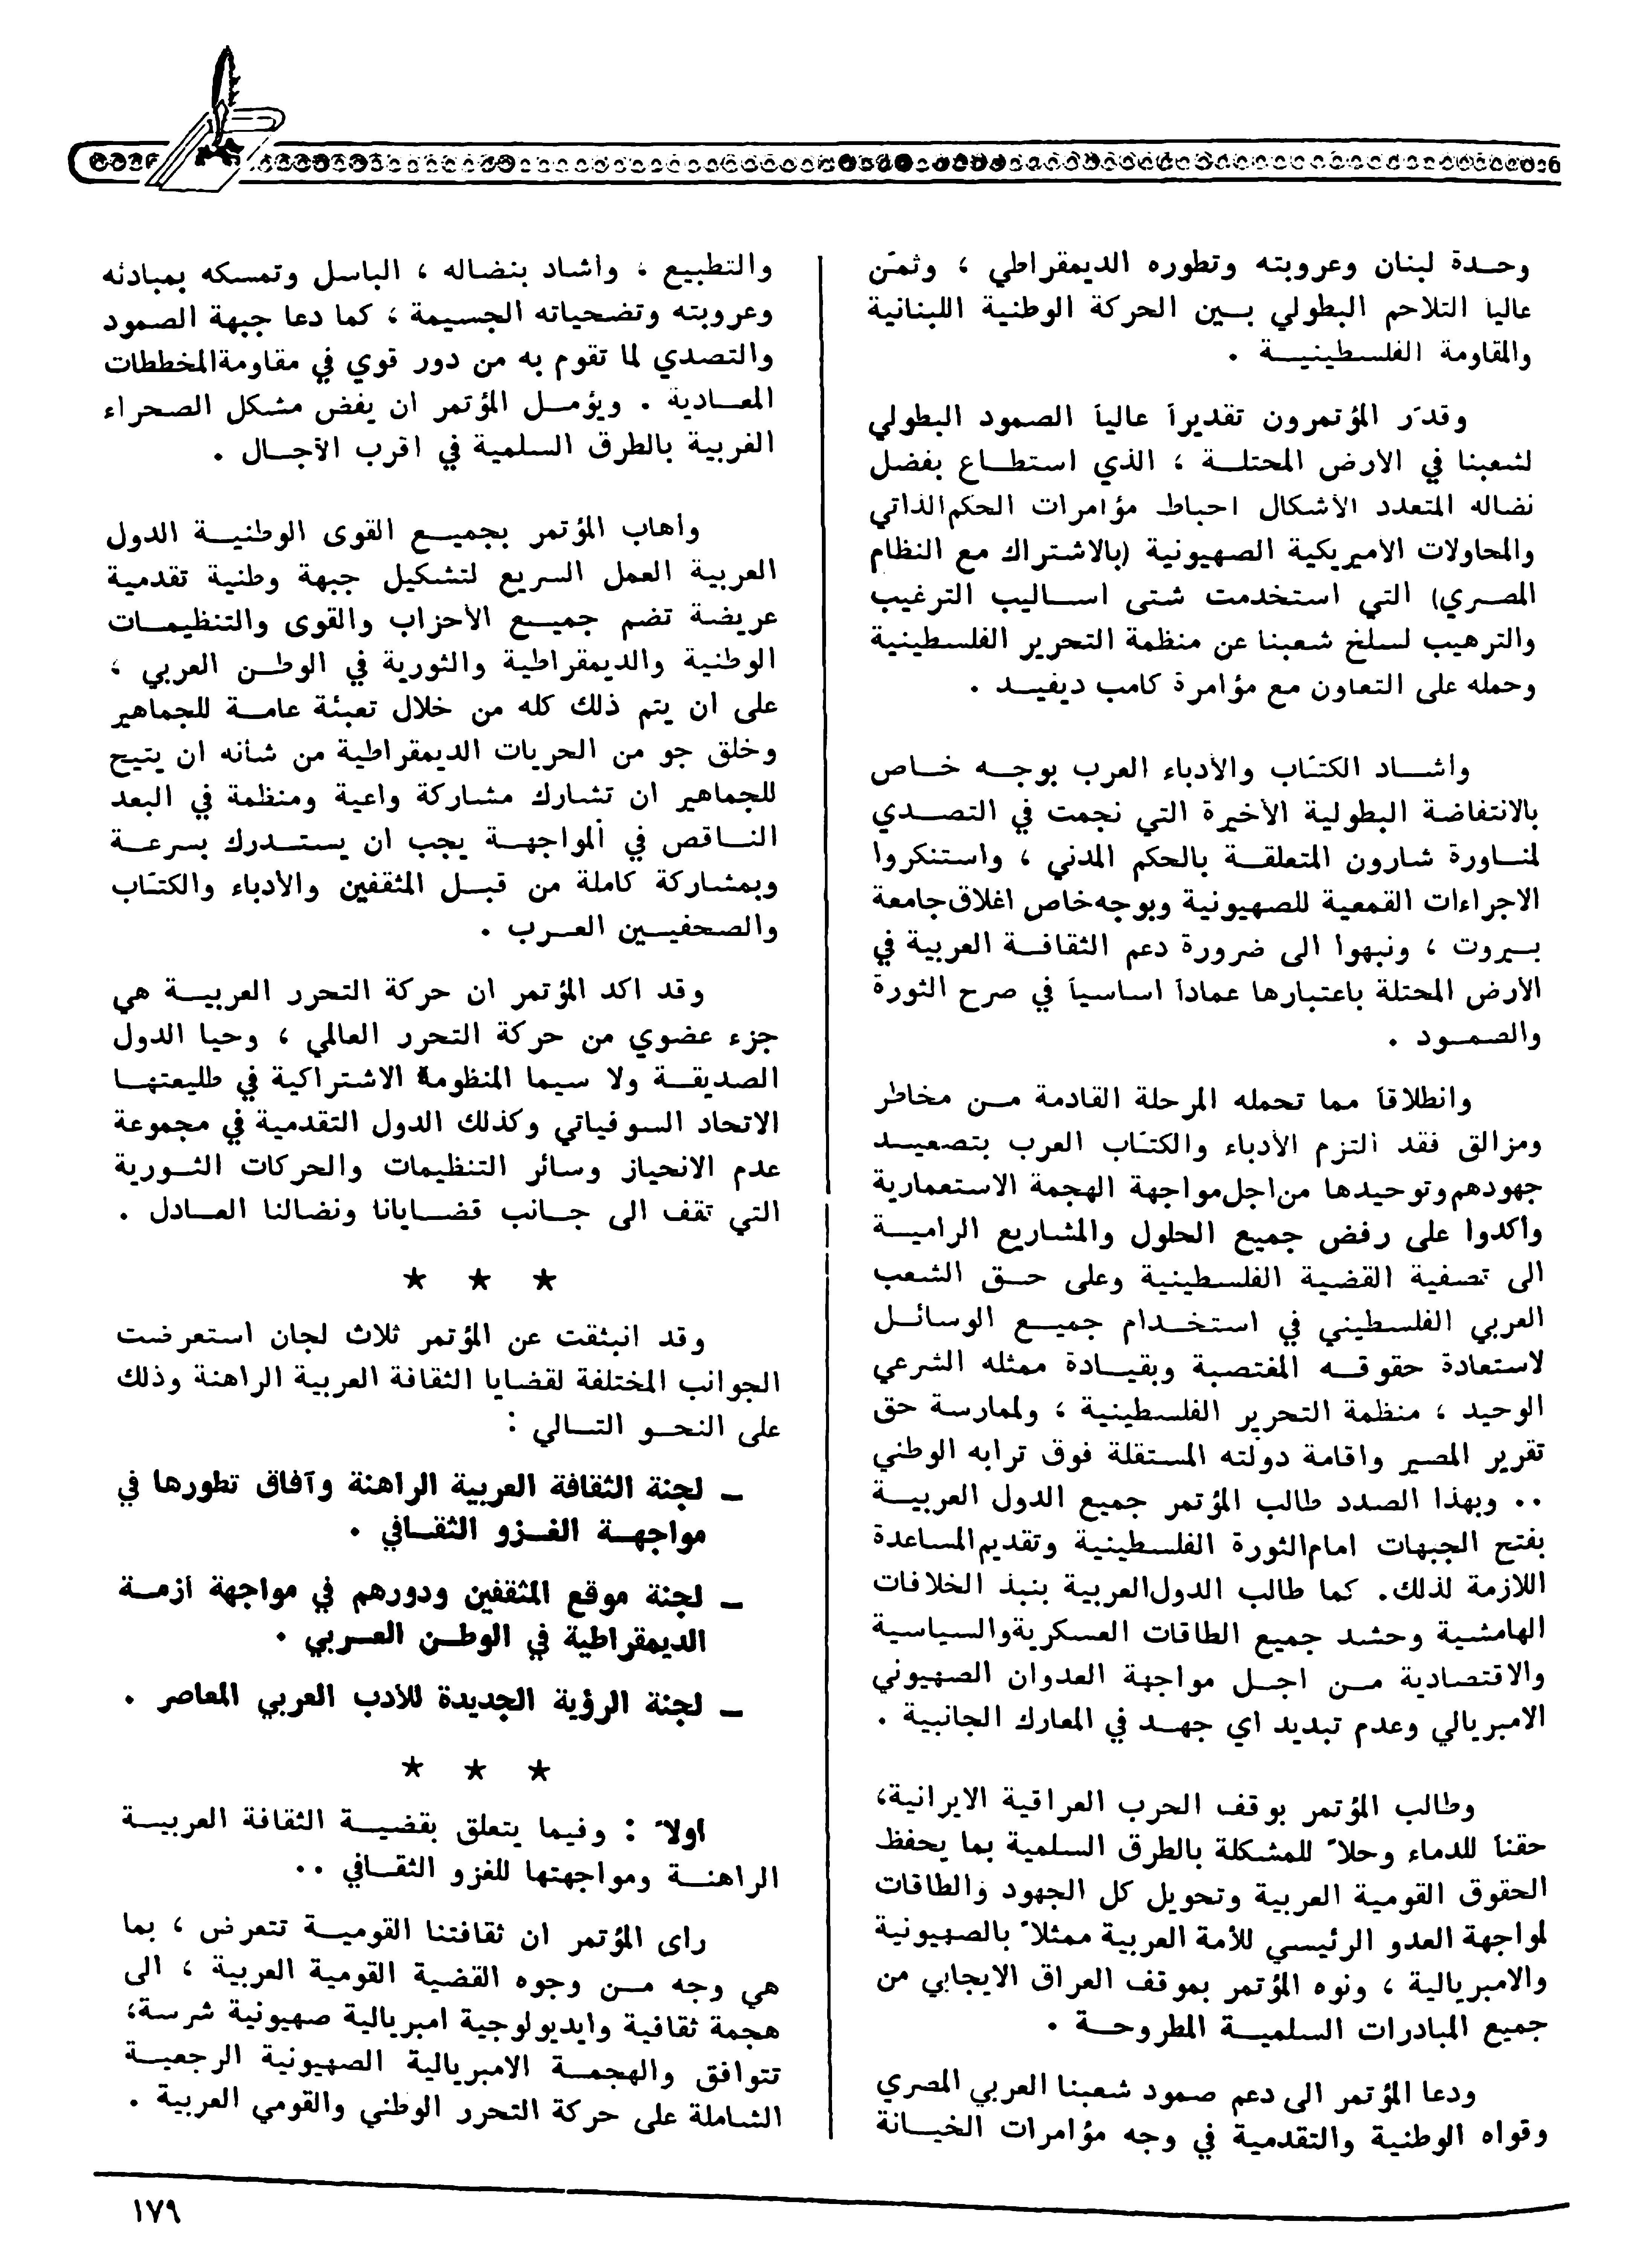 وحـدة لبنان وعروبته وتطوره الديمقراطي ، وثمّن
عاليا التلاحم البطولي بـين الحركة الوطنية اللبنانية
والمقاومة الفلسطينيـة .
وقدّر المؤتمرون تقديراً عالياً الصمود البطولي
لشعبنا في الارض المحتلـة ، الذي استطـاع بفضل
نضاله المتعدد الاشكال احباط مؤامرات الحكم الذاتي
والمحاولات الأميريكية الصهيونية (بالاشتراك مع النظام
المصـري) التي استخدمت شتى اسـاليب الترغيب
والترهيب لسلخ شعبنا عن منظمة التحرير الفلسطينية
وحمله على التعاون مع مؤامرة كامب ديفيـد .
وأشـاد الكتّاب والأدباء العرب بوجـه خـاص
بالانتفاضة البطولية الأخيرة التي نجمت في التصـدي
لمنـاورة شارون المتعلقـة بالحكم المدني ، واستنكروا
الاجراءات القمعية للصهيونية وبوجه خاص اغلاق جامعة
بـيروت ، ونبهوا الى ضرورة دعم الثقافـة العربية في
الأرض المحتلة باعتبارها عماداً اساسياً في صرح الثورة
والصمـود .
وانطلاقاً مما تحمله المرحلة القادمة مـن مخاطر
ومزالق فقد التزم الأدباء والكتّاب العرب بتصعيـد
جهودهم وتوحيدها من اجل مواجهة الهجمة الاستعمارية
وأكدوا على رفض جميع الحلول والمشاريع الراميـة
الى تصفية القضية الفلسطينية وعلى حـق الشعب
العربي الفلسطيني في استخـدام جميـع الوسائـل
لاستعادة حقوقـه المغتصبة وبقيـادة ممثله الشرعي
الوحيد ، منظمة التحرير الفلسطينية ، ولممارسة حق
تقرير المصير واقامة دولته المستقلة فوق ترابه الوطني
.. وبهذا الصدد طالب المؤتمر جميع الدول العربيـة
بفتح الجبهات امام الثورة الفلسطينية وتقديم المساعدة
اللازمة لذلك. كما طالب الدول العربية بنبذ الخلافات
الهامشية وحشد جميع الطاقات العسكرية والسياسية
والاقتصادية مـن اجـل مواجهة العدوان الصهيوني
الامبريالي وعدم تبديد اي جهـد في المعارك الجانبية .
وطالب المؤتمر بوقف الحرب العراقية الايرانية،
حقناً للدماء وحلاً للمشكلة بالطرق السلمية بما يحفظ
الحقوق القومية العربية وتحويل كل الجهود والطاقات
لمواجهة العدو الرئيسي للأمة العربية ممثلاً بالصهيونية
والامبريالية ، ونوه المؤتمر بموقف العراق الايجابي من
جميع المبادرات السلميـة المطروحـة .
ودعا المؤتمر الى دعم صمود شعبنا العربي المصري
وقواه الوطنية والتقدمية في وجه مؤامرات الخيـانة
والتطبيع ، وأشاد بنضاله ، الباسل وتمسكه بمبادئه
وعروبته وتضحياته الجسيمة ، كما دعا جبهة الصمود
والتصدي لما تقوم به من دور قوي في مقاومة المخططات
المعـادية . ويؤمـل المؤتمر ان يفض مشكل الصحراء
الغربية بالطرق السلمية في اقرب الآجـال .
وأهاب المؤتمر بجميـع القوى الوطنيـة الدول
العربية العمل السريع لتشكيل جبهة وطنية تقدمية
عريضة تضم جميـع الأحزاب والقوى والتنظيمـات
الوطنية والديمقراطية والثورية في الوطـن العربي ،
على ان يتم ذلك كله من خلال تعبئة عامـة للجماهير
وخلق جو من الحريات الديمقراطية من شأنه ان يتيح
للجماهير ان تشارك مشاركة واعية ومنظمة في البعد
النـاقص في المواجهـة يجب ان يستـدرك بسرعـة
وبمشاركة كاملة من قبـل المثقفين والأدباء والكتّاب
والصحفيـين العـرب .
وقد اكد المؤتمر ان حركة التحرر العربيـة هي
جزء عضوي من حركة التحرر العالمي ، وحيا الدول
الصديقـة ولا سيما المنظومة الاشتراكية في طليعتهـا
الاتحاد السوفياتي وكذلك الدول التقدمية في مجموعة
عدم الانحياز وسائر التنظيمات والحركات الثـورية
التي تقف الى جـانب قضـايانا ونضالنا العـادل .
★ ★ ★
وقد انبثقت عن المؤتمر ثلاث لجان استعرضت
الجوانب المختلفة لقضايا الثقافة العربية الراهنة وذلك
على النحـو التـالي :
ــ لجنة الثقافة العربية الراهنة وآفاق تطورها في
مواجهـة الغـزو الثقـافي .
ــ لجنة موقع المثقفين ودورهم في مواجهة أزمـة
الديمقراطية في الوطـن العـربي .
ــ لجنة الرؤية الجديدة للأدب العربي المعاصر .
★ ★ ★
اولاً : وفيما يتعلق بقضيـة الثقافة العربيـة
الراهنـة ومواجهتها للغزو الثقـافي ..
رأى المؤتمر ان ثقافتنا القوميـة تتعرض ، بما
هي وجه مـن وجوه القضية القومية العربية ، الى
هجمة ثقافية وايديولوجية امبريالية صهيونية شرسة،
تتوافق والهجمـة الامبريالية الصهيونية الرجعيـة
الشاملة على حركة التحرر الوطني والقومي العربية .
١٧٩